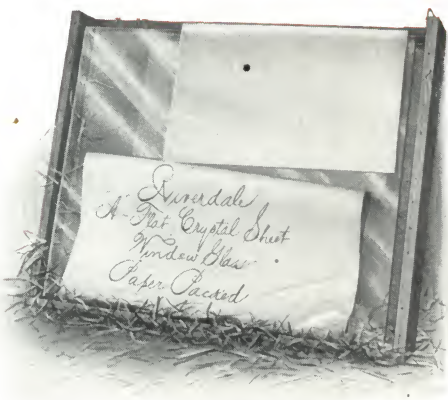 Riverdale
"A"-Flat Crystal Sheet
Window Glass
Paper Packed